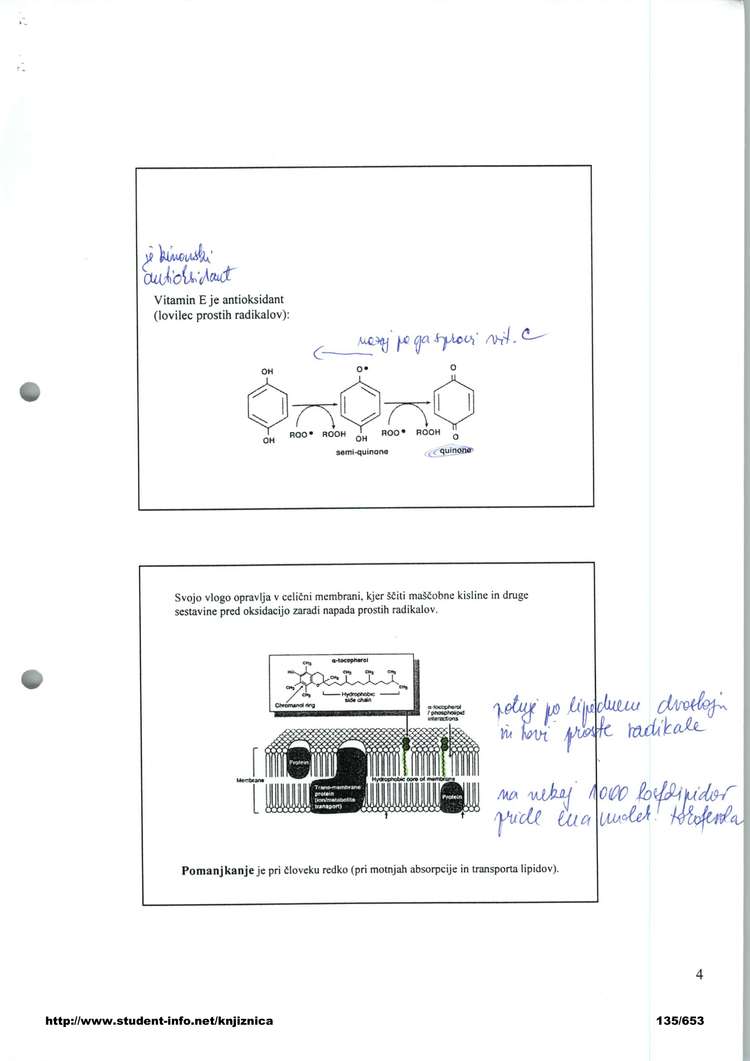 je kinonski
antioksidant
Vitamin E je antioksidant
(lovilec prostih radikalov):
nazaj pa ga spravi vit. C
OH
O•
O
OH
ROO•
ROOH
OH
ROO•
ROOH
O
semi-quinone
quinone
Svojo vlogo opravlja v celični membrani, kjer ščiti maščobne kisline in druge
sestavine pred oksidacijo zaradi napada prostih radikalov.
α-tocopherol
CH₃
HO
CH₃
CH₃
CH₃
CH₃
CH₃
CH₃
CH₃
Hydrophobic
side chain
Chromanol ring
α-tocopherol
/ phospholipid
interactions
potuje po lipidnem dvosloju
in lovi proste radikale
Protein
Membrane
Hydrophobic core of membrane
Trans-membrane
protein
(ion/metabolite
transport)
Protein
na nekaj 1000 fosfolipidov
pride ena molek. tokoferola
Pomanjkanje je pri človeku redko (pri motnjah absorpcije in transporta lipidov).
4
http://www.student-info.net/knjiznica
135/653